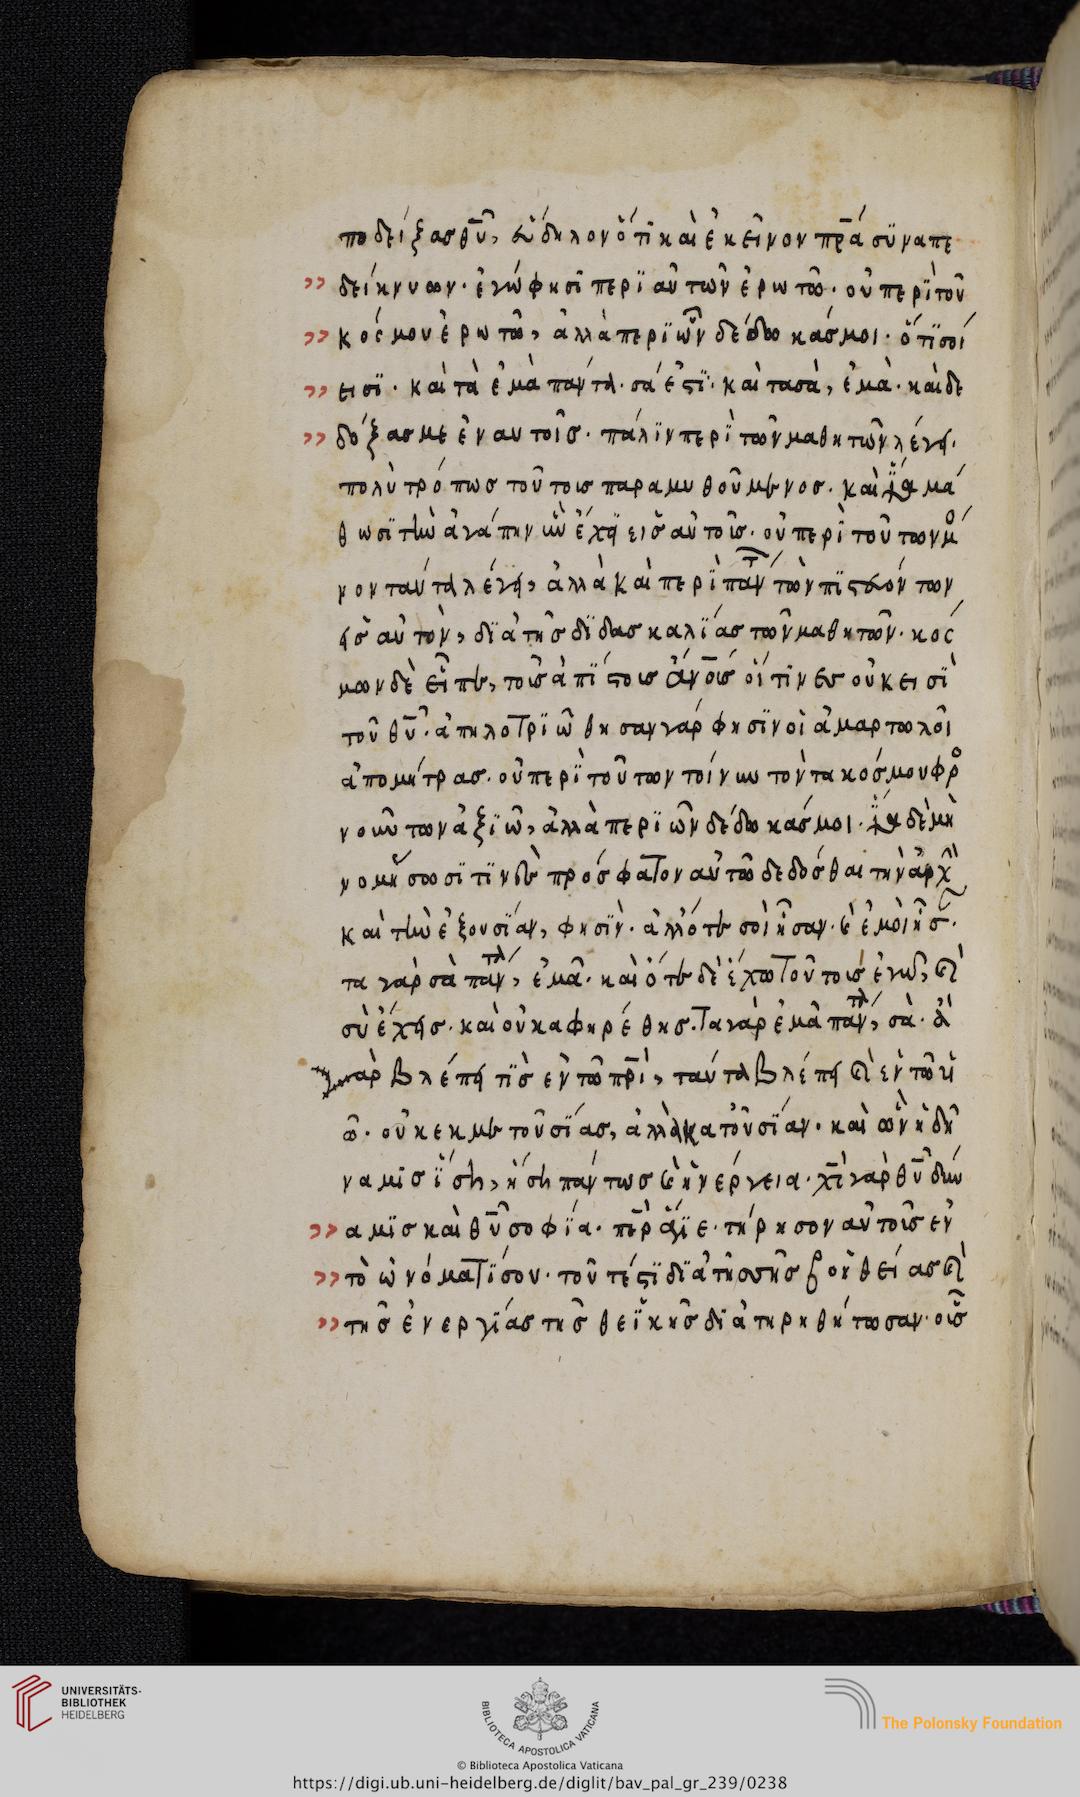 ποδείξας θῡ, εὔδηλον ὅτι καὶ ἐκεῖνον πρ̄α συναπε
δείκνυων. ἐγώ φησι περὶ αὐτῶν ἐρωτῶ. οὐ περὶ τοῦ
κόσμου ἐρωτῶ, ἀλλὰ περὶ ὧν δέδωκάς μοι. ὅτι σοί
εισι. καὶ τὰ ἐμὰ πάντα. σά ἐστι. καὶ τα σὰ, ἐμὰ. καὶ δε
δόξασμε ἐν αυτοῖς. πάλιν περὶ τῶν μαθητῶν λέγει.
πολὺ τρόπως τούτοις παραμυθούμενος. καὶ ἵνα μά
θωσι τὴν ἀγάπην ἣν ἔχει εἰς αὐτοῖς. οὐ περὶ τούτων μό
νον ταύτα λέγει, ἀλλὰ καὶ περὶ πάντων τῶν πιστευόντων
εἰς αὐτὸν, διὰ τῆς διδασκαλίας τῶν μαθητῶν. κοσ
μων δὲ εἶπεν, τοῖς ἀπίστοις ἀν̄οις οἵτινες οὐκ εισὶ
τοῦ θῡ. ἀπηλοτριώθησαν γάρ φησιν οἱ ἁμαρτωλοὶ
ἀπο μήτρας. οὐ περὶ τούτων τοίνυν τὸν τα κόσμου φρο
νουντων ἀξιῶ, ἀλλὰ περὶ ὧν δέδωκάς μοι. ἵνα δὲ μὴ
νομήσωσι τινὲς πρόσφατον αὐτῶ δεδόσθαι τὴν ἀρχὴ
καὶ τὴν ἐξουσίαν, φησὶν. ἀλλ' ότε σοὶ ἦσαν. καὶ ἐμοὶ ἦσαν.
τα γὰρ σὰ πάντα, ἐμᾶ. καὶ ὅτε δὲ ἔχω τούτοις ἐγὼ, καὶ
σὺ ἔχεις. καὶ οὐκ αφηρέθης. Τα γὰρ ἐμᾶ πάντα, σὰ. ἃ
γὰρ βλέπει τὶς ἐν τῶ πρ̄ι, ταύτα βλέπει καὶ ἐν τῶ υἱ
ῶ. οὐκ εκ μετουσίας, ἀλλὰ κατ' οὐσίαν. καὶ ὧν ἡ δύ
ναμις ἴση, ἴση πάντως καὶ ἡ νέργεια. χς̄ γὰρ θῡ δύν
αμις καὶ θῡ σοφία. πε̄ρ ἅγιε. τήρησον αὐτοῖς εν
τὸ ὠνόματί σου. τοῦτέστι διὰ τῆς σῆς βοηθείας καὶ
τῆς ἐνεργίας τῆς θεϊκῆς διατηρηθήτωσαν. οὓς
UNIVERSITÄTS-
BIBLIOTHEK
HEIDELBERG
BIBLIOTECA APOSTOLICA VATICANA
The Polonsky Foundation
© Biblioteca Apostolica Vaticana
https://digi.ub.uni-heidelberg.de/diglit/bav_pal_gr_239/0238